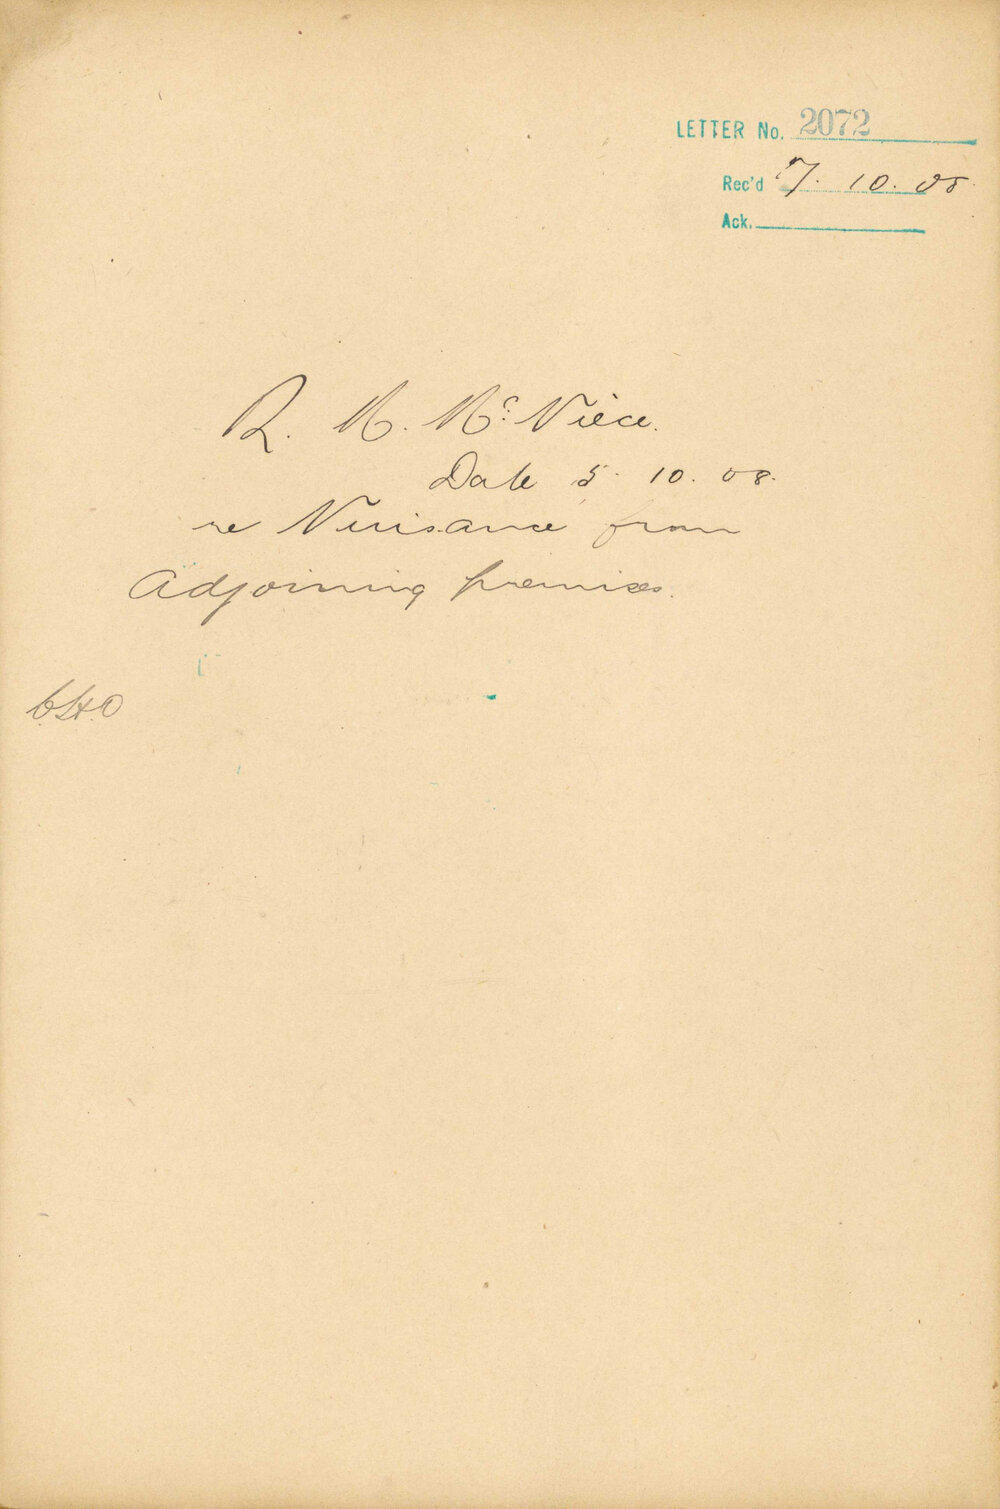 LETTER No. 2072
Rec'd 7. 10. 08
Ack.
R. M. McNiece.
Date 5. 10. 08.
re Nuisance from
Adjoining premises.